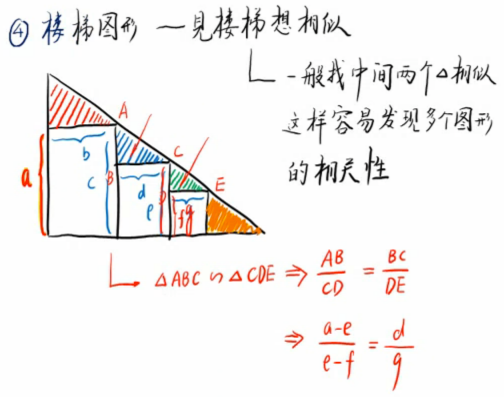 ④ 楼梯图形 — 見楼梯想相似
一般找中间两个△相似
这样容易发现多个图形
的相关性
A
b
C
a
c
B
d
D
E
e
f
g
△ABC ∽ △CDE ⇒ AB/CD = BC/DE
⇒ a-e/e-f = d/g